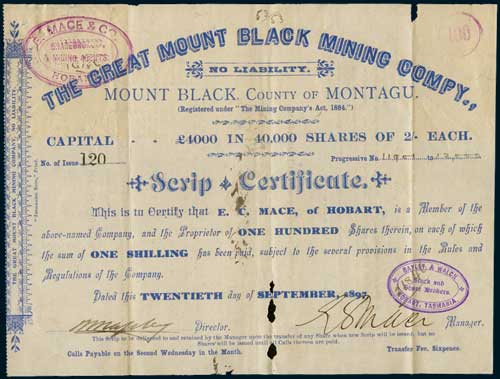 53 53
E. C. MACE & CO
SHAREBROKERS
& MINING AGENTS.
HOBART
100
THE GREAT MOUNT BLACK MINING COMPY.,
NO LIABILITY.
MOUNT BLACK, COUNTY OF MONTAGU.
(Registered under "The Mining Company's Act, 1884.")
CAPITAL £4000 IN 40,000 SHARES OF 2/- EACH.
No. of Issue 120
Progressive No.
Scrip Certificate.
This is to Certify that E. C. MACE, of HOBART, is a Member of the
above-named Company, and the Proprietor of ONE HUNDRED Shares therein, on each of which
the sum of ONE SHILLING has been paid, subject to the several provisions in the Rules and
Regulations of the Company.
Dated this TWENTIETH day of SEPTEMBER, 1897
BAYLEY & WALCH
Stock and
Share Brokers.
HOBART, TASMANIA.
Director.
E C Mace Manager.
This Scrip to be delivered to and retained by the Manager upon the transfer of any Share when new Scrip will be issued, but no
Shares will be issued until all Calls thereon are paid.
Calls Payable on the Second Wednesday in the Month.
Transfer Fee, Sixpence.
THE GREAT MOUNT BLACK MINING COMPANY, NO LIABILITY.